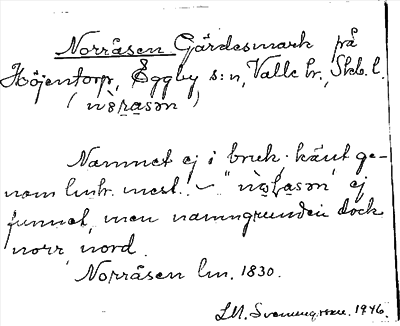 Norråsen Gärdesmark på
Höjentorp, Eggby s:n, Valle hr., Skb. l.
(nòrasən)
Namnet ej i bruk; känt ge-
nom lmtr. mest. – "nòrasən" ej
funnet, men namngrunden dock
norr, nord.
Norråsen lm. 1830.
LM. Svenungsson. 1946.